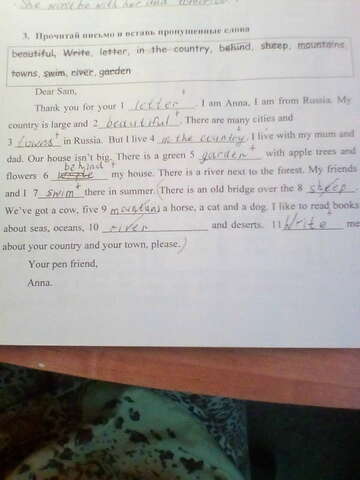 She must be with her and
3. Прочитай письмо и вставь пропущенные слова
beautiful, Write, letter, in the country, behind, sheep, mountains,
towns, swim, river, garden
Dear Sam,
Thank you for your 1 letter. I am Anna, I am from Russia. My
country is large and 2 beautiful. There are many cities and
3 towns in Russia. But I live 4 in the country. I live with my mum and
dad. Our house isn't big. There is a green 5 garden with apple trees and
behind
flowers 6 my house. There is a river next to the forest. My friends
and I 7 swim there in summer. (There is an old bridge over the 8 sheep
We've got a cow, five 9 mountains a horse, a cat and a dog. I like to read books
about seas, oceans, 10 river and deserts. 11 Write me
about your country and your town, please.)
Your pen friend,
Anna.